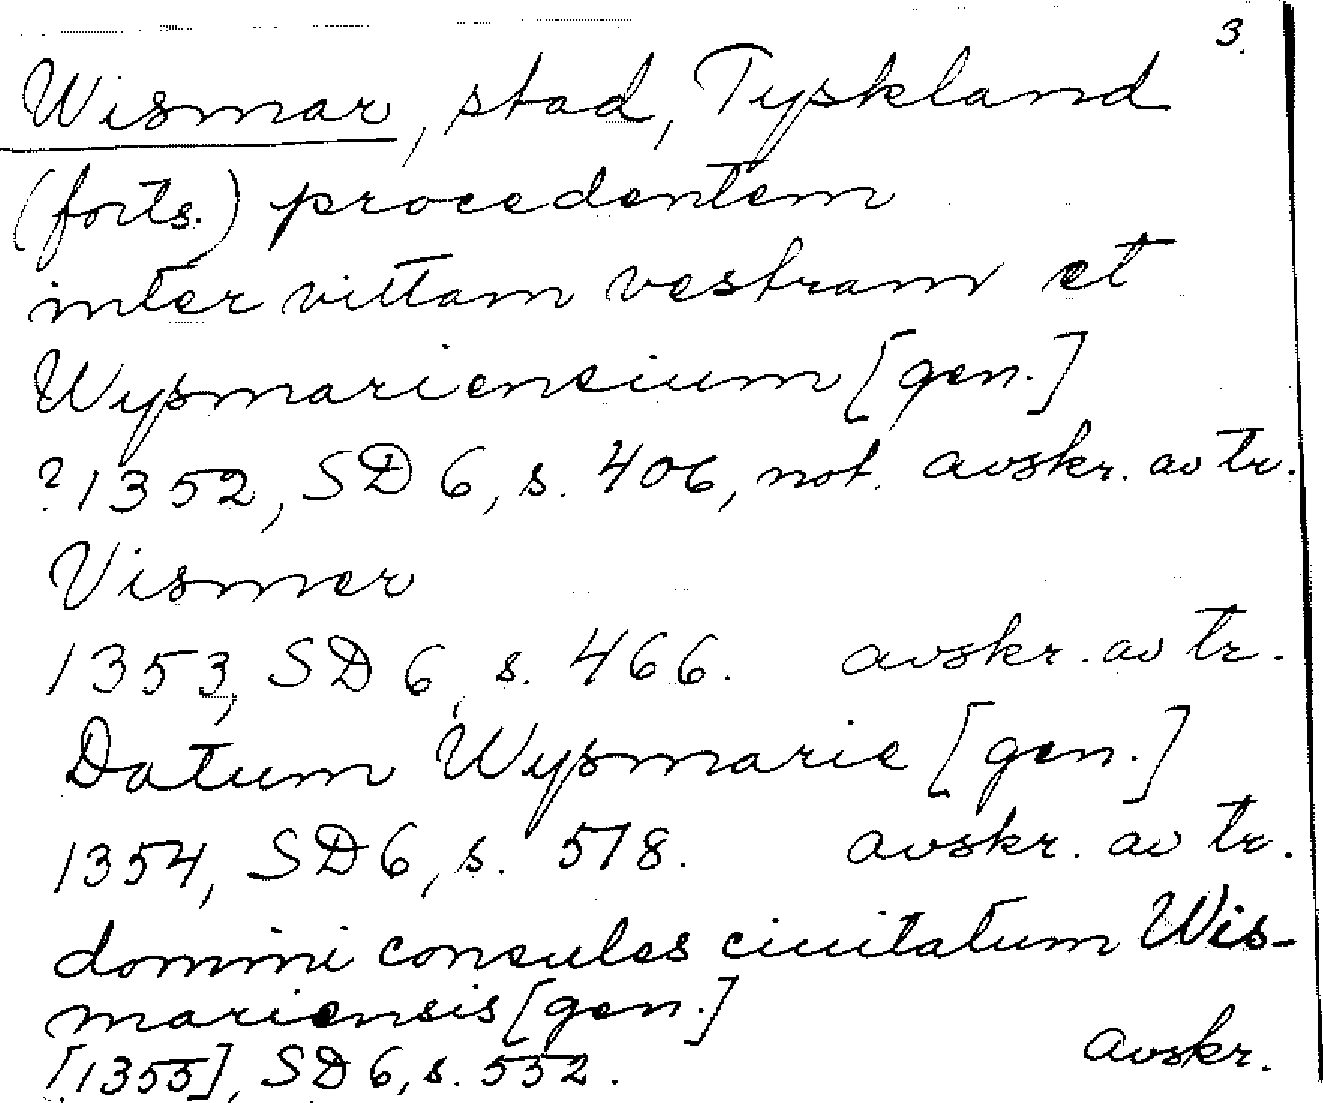 3.
Wismar, stad, Tyskland
(forts.) procedentem
inter vittam vestram et
Wysmariensium [gen.]
?1352, SD 6, s. 406, not. avskr. av tr.
Vismer
1353, SD 6, s. 466. avskr. av tr.
Datum Wysmarie [gen.]
1354, SD 6, s. 518. avskr. av tr.
domini consules ciuitatum Wis-
mariensis [gen.]
[1355], SD 6, s. 552. avskr.